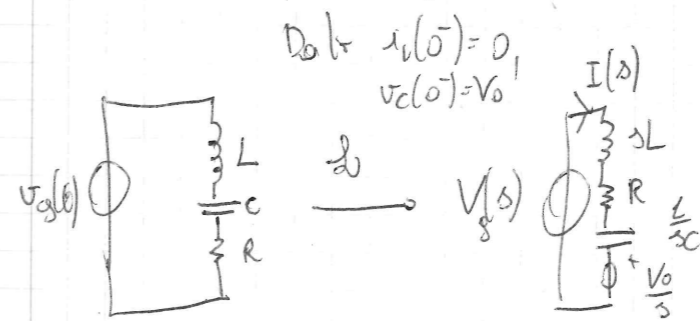 Da le i_L(0⁻)=0,
v_C(0⁻)=V₀
I(s)
v_g(t)
L
C
R
ℒ
V_g(s)
sL
R
1/sC
+
V₀/s